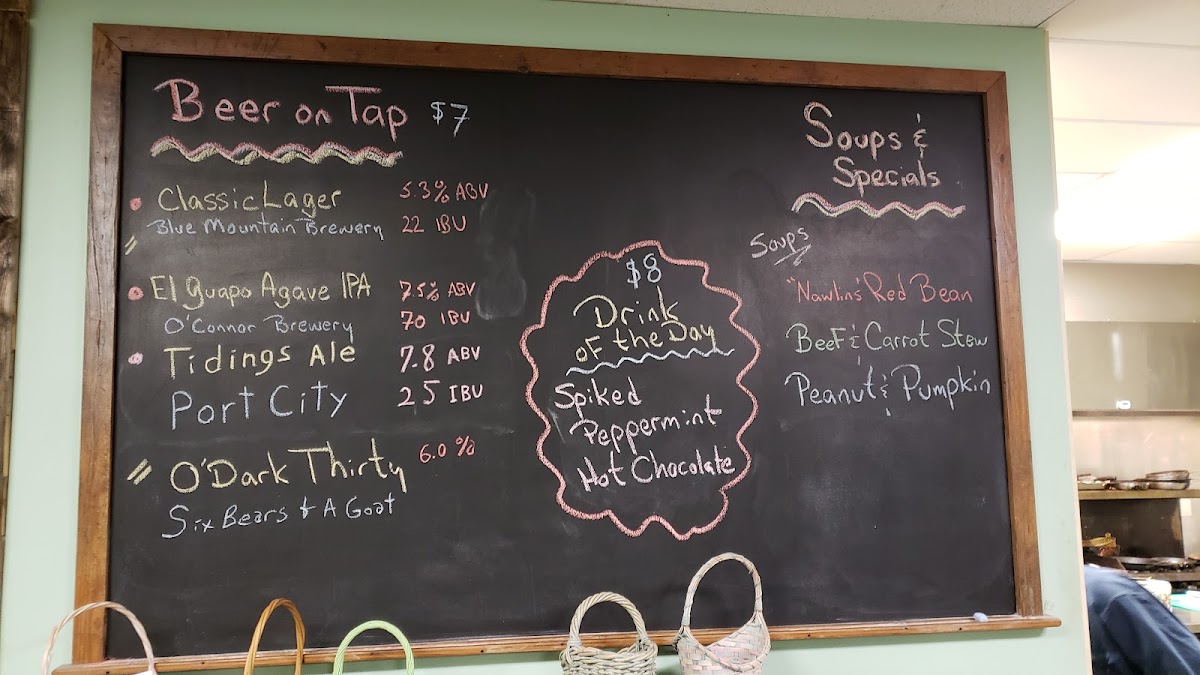 Beer on Tap $7
Classic Lager 5.3% ABV
Blue Mountain Brewery 22 IBU
El Guapo Agave IPA 7.5% ABV
O'Connor Brewery 70 IBU
Tidings Ale 7.8 ABV
Port City 25 IBU
O'Dark Thirty 6.0%
Six Bears & A Goat
$8
Drink
of the Day
Spiked
Peppermint
Hot Chocolate
Soups &
Specials
Soups
"Nawlin's Red Bean
Beef & Carrot Stew
Peanut & Pumpkin